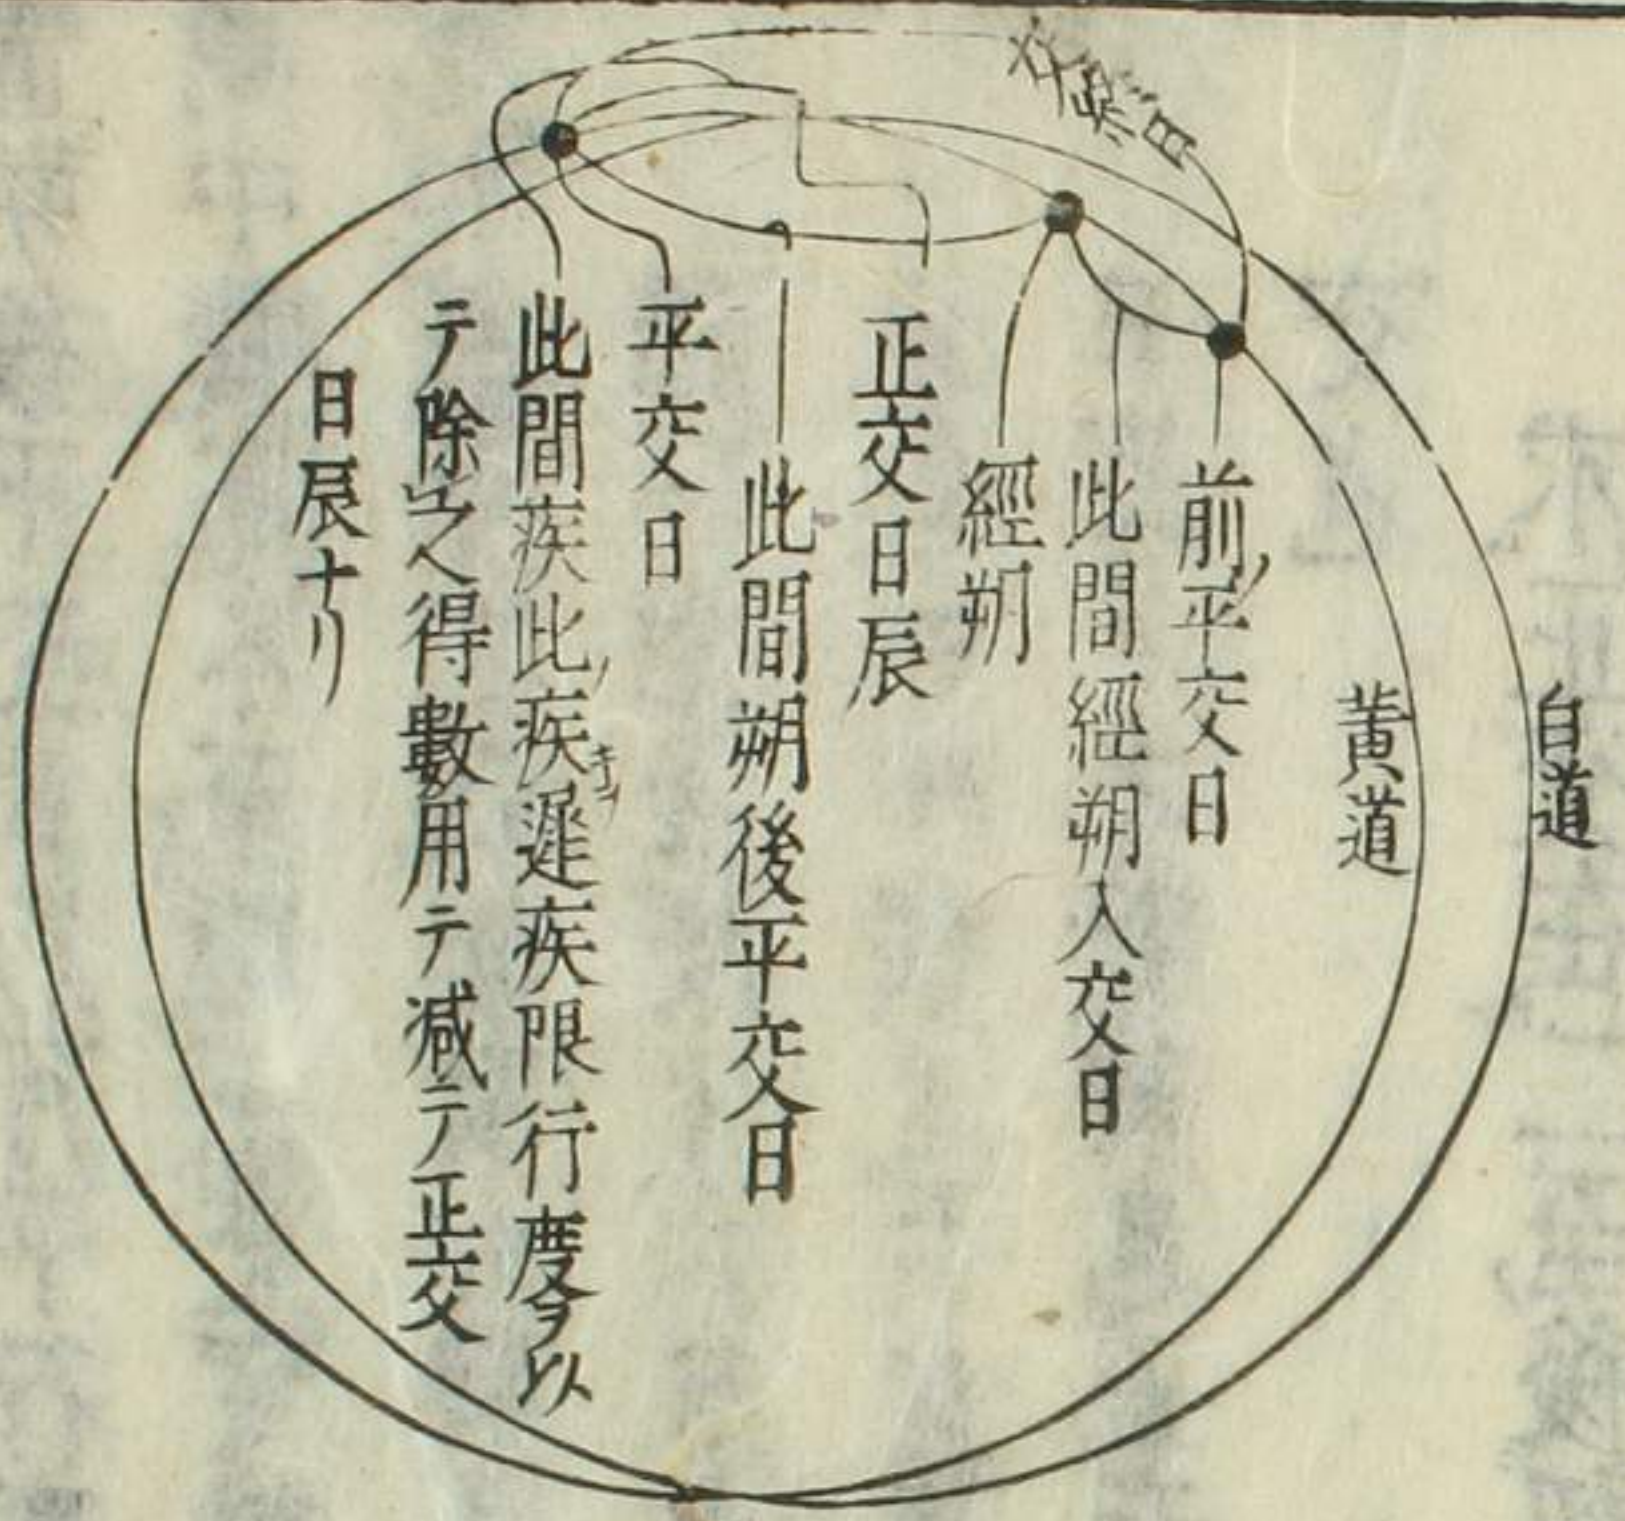 白道
黄道
交終日
前ノ平交日
此間經朔入交日
經朔
正交日辰
此間朔後平交日
平交日
此間疾此ノ疾遲疾限行度ヲ以
テ除之得數用テ減テ正交
日辰ナリ